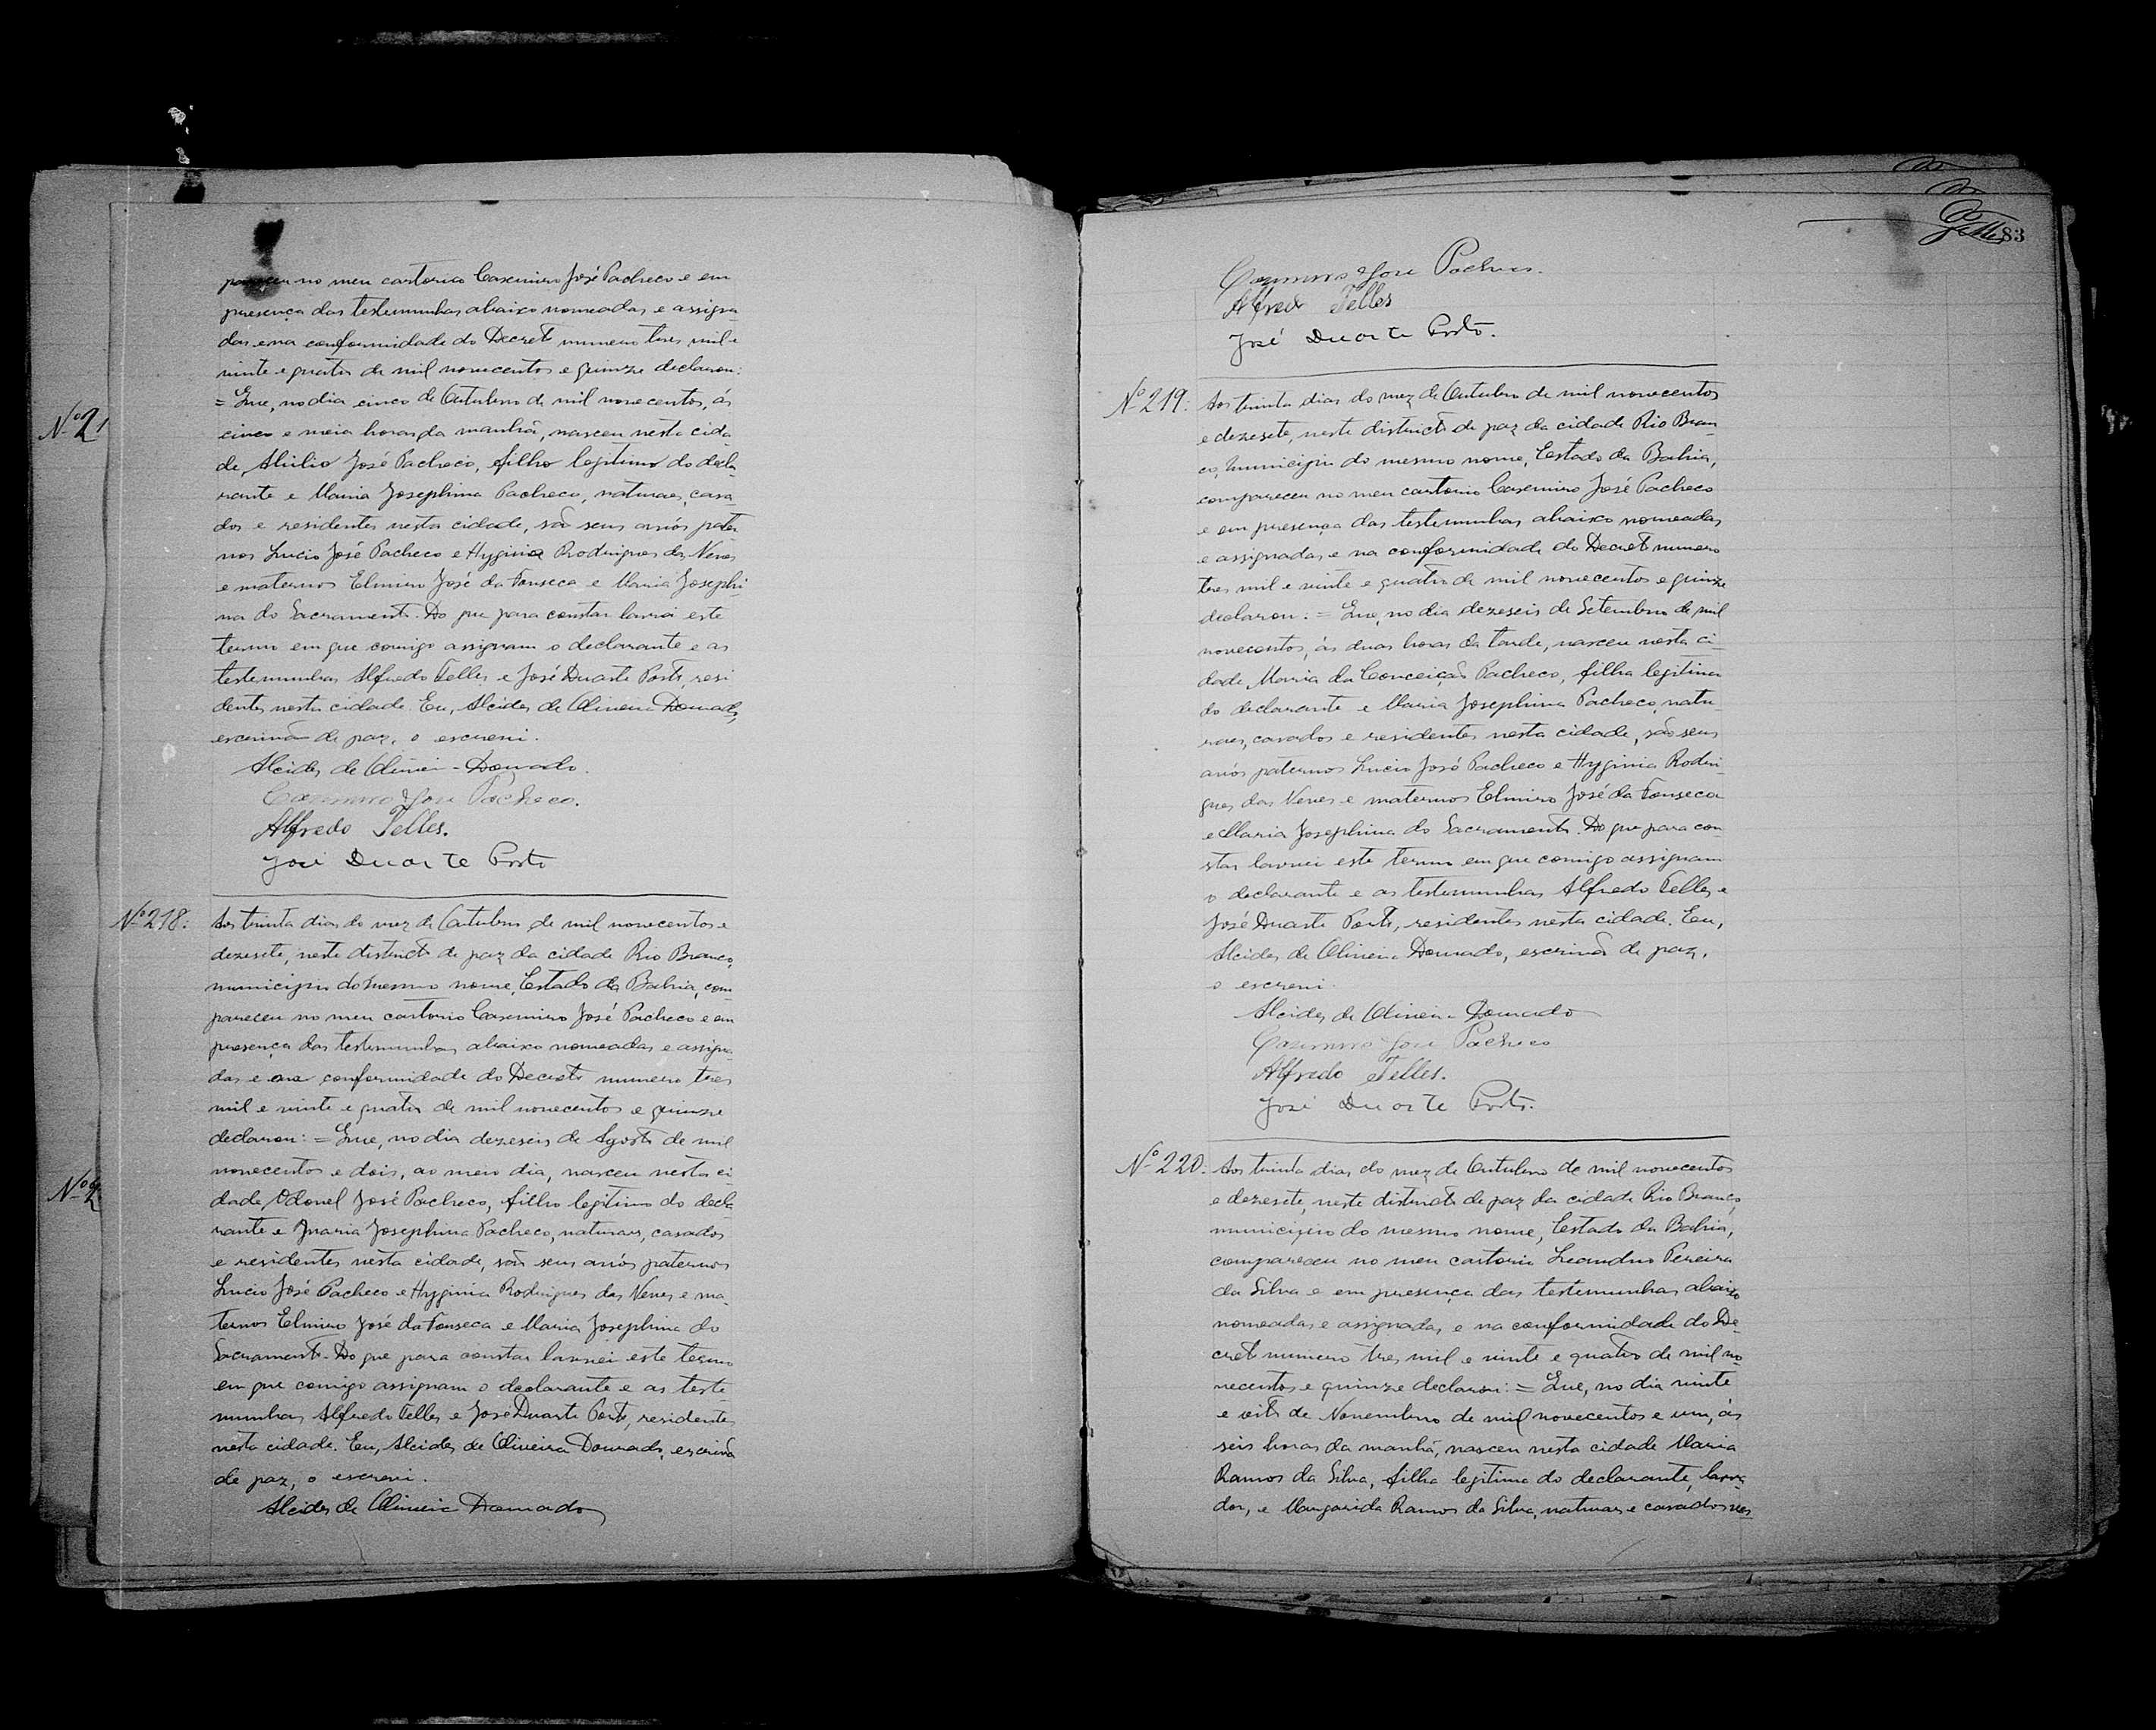 pareceu no meu cartorio Casemiro José Pacheco e em
presença das testemunhas abaixo nomeadas e assigna
das e na conformidade do Decreto numero tres mil e
vinte e quatro de mil novecentos e quinze declarou:
= Que, no dia cinco de Outubro de mil novecentos, ás
cinco e meia horas da manhã, nasceu nesta cida
de, Abilio José Pacheco, filho legitimo do decla
rante e Maria Josephina Pacheco, naturaes, casa
dos e residentes nesta cidade, são seus avós pater
nos Lucio José Pacheco e Hyginia Rodrigues das Neves
e maternos Elmiro José da Fonseca e Maria Josephi
na do Sacramento. Do que para constar lavrei este
termo em que comigo assignam o declarante e as
testemunhas Alfredo Telles e José Duarte Porto, resi
dentes nesta cidade. Eu, Alcides de Oliveira Dourado,
escrivão de paz, o escrevi.
Alcides de Oliveira Dourado.
Casemiro José Pacheco.
Alfredo Telles.
José Duarte Porto
Nº 218:
Aos trinta dias do mez de Outubro de mil novecentos e
dezesete, neste districto de paz da cidade Rio Branco,
municipio do mesmo nome, Estado da Bahia, com
pareceu no meu cartorio Casemiro José Pacheco e em
presença das testemunhas abaixo nomeadas e assigna
das e na conformidade do Decreto numero tres
mil e vinte e quatro de mil novecentos e quinze
declarou: = Que, no dia dezeseis de Agosto de mil
novecentos e dois, ao meio dia, nasceu nesta ci
dade, Odonel José Pacheco, filho legitimo do decla
rante e Maria Josephina Pacheco, naturaes, casados
e residentes nesta cidade, são seus avós paternos
Lucio José Pacheco e Hyginia Rodrigues das Neves e ma-
ternos Elmiro José da Fonseca e Maria Josephina do
Sacramento. Do que para constar lavrei este termo
em que comigo assignam o declarante e as teste
munhas Alfredo Telles e José Duarte Porto, residentes
nesta cidade. Eu, Alcides de Oliveira Dourado, escrivão
de paz, o escrevi.
Alcides de Oliveira Dourado
83
Casemiro José Pacheco.
Alfredo Telles
José Duarte Porto.
Nº 219:
Aos trinta dias do mez de Outubro de mil novecentos
e dezesete, neste districto de paz da cidade Rio Bran-
co, municipio do mesmo nome, Estado da Bahia,
compareceu no meu cartorio Casemiro José Pacheco
e em presença das testemunhas abaixo nomeadas
e assignadas e na conformidade do Decreto numero
tres mil e vinte e quatro de mil novecentos e quinze
declarou: = Que, no dia dezeseis de Setembro de mil
novecentos, ás duas horas da tarde, nasceu nesta ci-
dade Maria da Conceição Pacheco, filha legitima
do declarante e Maria Josephina Pacheco, natu-
raes, casados e residentes nesta cidade, são seus
avós paternos Lucio José Pacheco e Hyginia Rodri-
gues das Neves e maternos Elmiro José da Fonseca
e Maria Josephina do Sacramento. Do que para con-
star lavrei este termo em que comigo assignam
o declarante e as testemunhas Alfredo Telles e
José Duarte Porto, residentes nesta cidade. Eu,
Alcides de Oliveira Dourado, escrivão de paz,
o escrevi.
Alcides de Oliveira Dourado
Casemiro José Pacheco
Alfredo Telles.
José Duarte Porto.
Nº 220.
Aos trinta dias do mez de Outubro de mil novecentos
e dezesete, neste districto de paz da cidade Rio Branco,
municipio do mesmo nome, Estado da Bahia,
compareceu no meu cartorio Leandro Pereira
da Silva e em presença das testemunhas abaixo
nomeadas e assignadas, e na conformidade do De-
creto numero tres mil e vinte e quatro de mil no-
vecentos e quinze declarou: = Que, no dia vinte
e oito de Novembro de mil novecentos e um, ás
seis horas da manhã, nasceu nesta cidade Maria
Ramos da Silva, filha legitima do declarante, lavra
dor, e Margarida Ramos da Silva, naturaes e casados nes